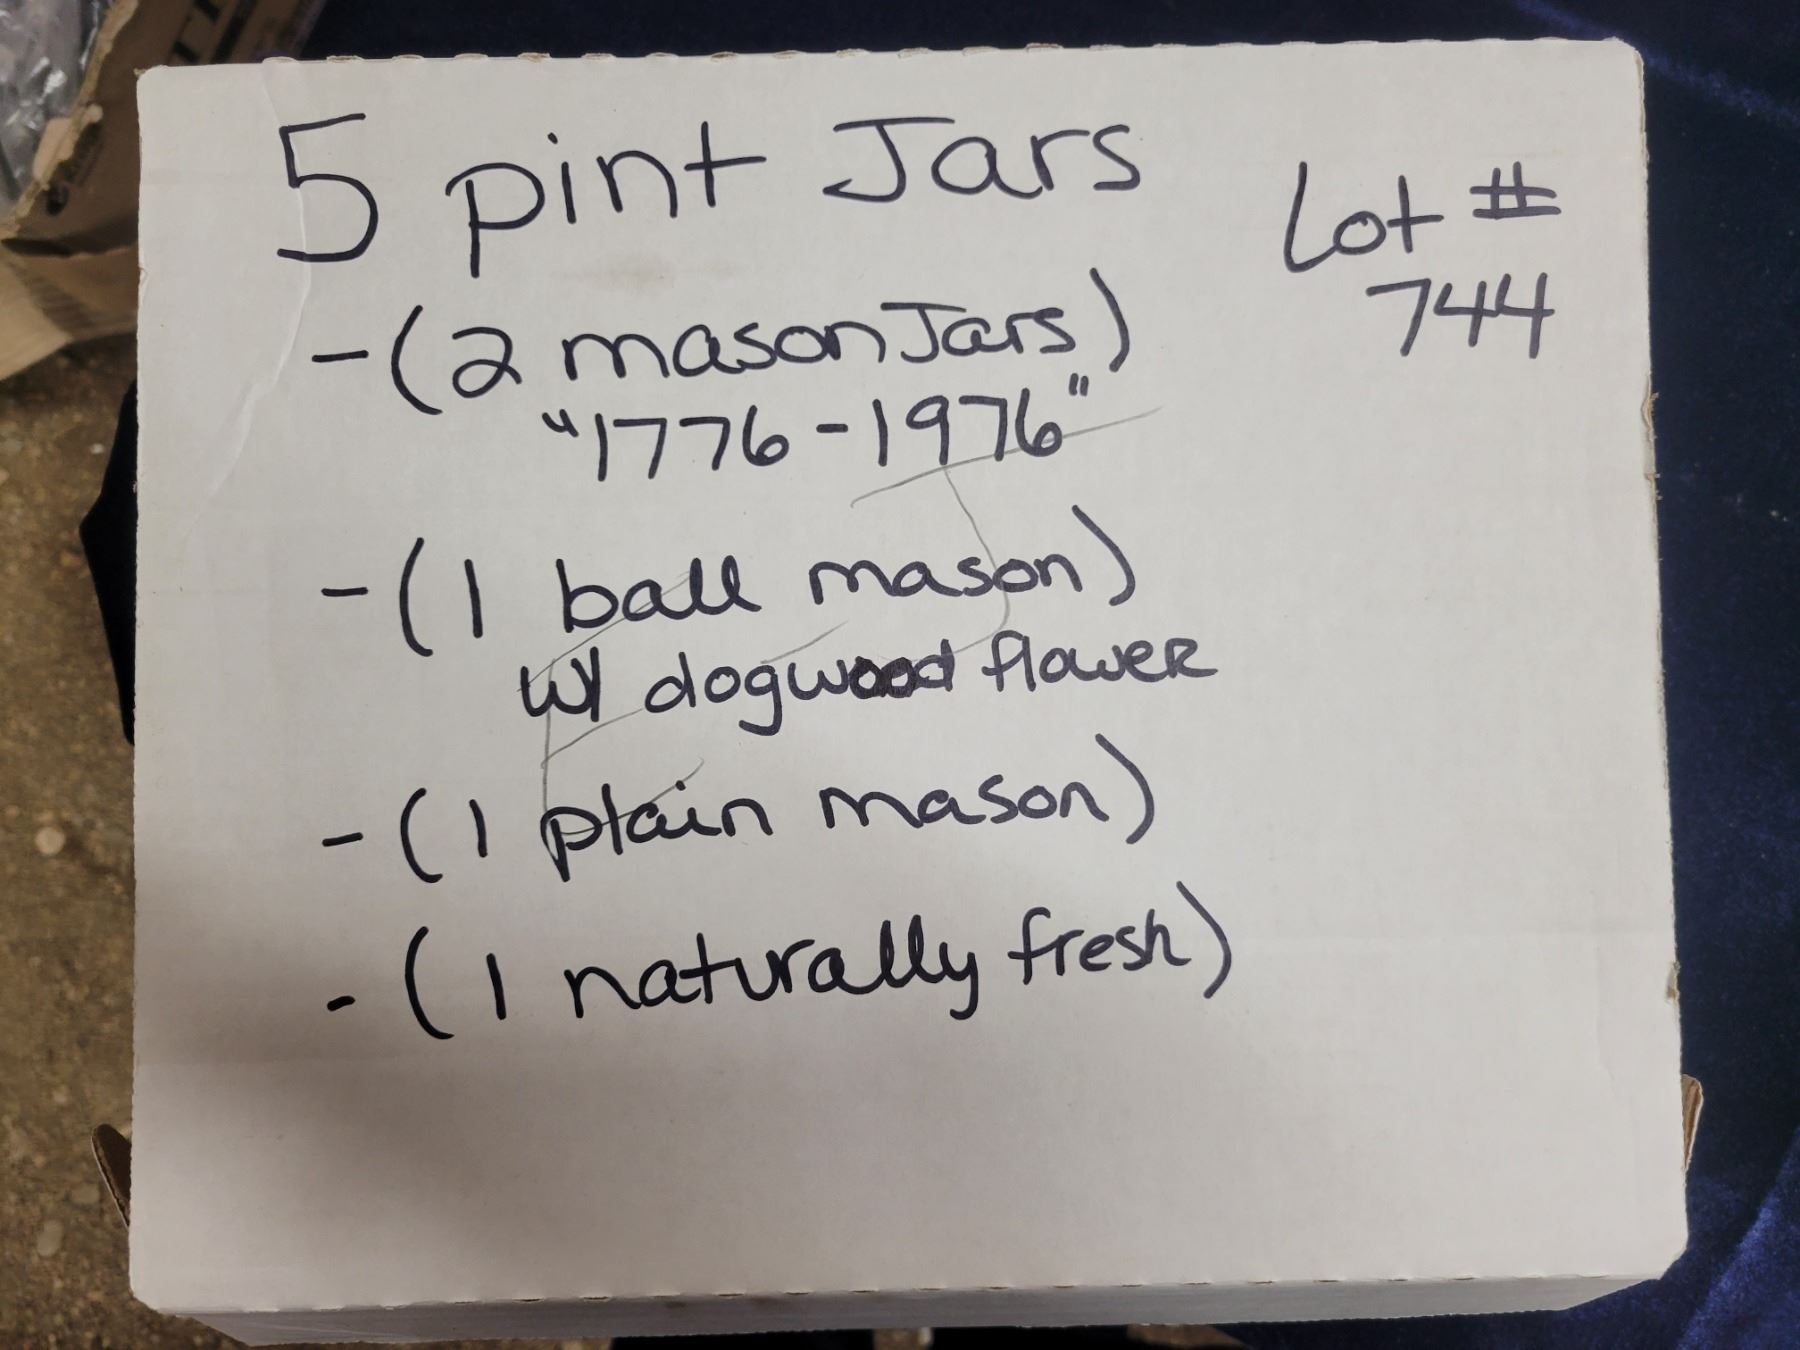 5 pint Jars
Lot #
744
- (2 mason Jars)
"1776-1976"
- (1 ball mason)
w/ dogwood flower
- (1 plain mason)
- (1 naturally fresh)